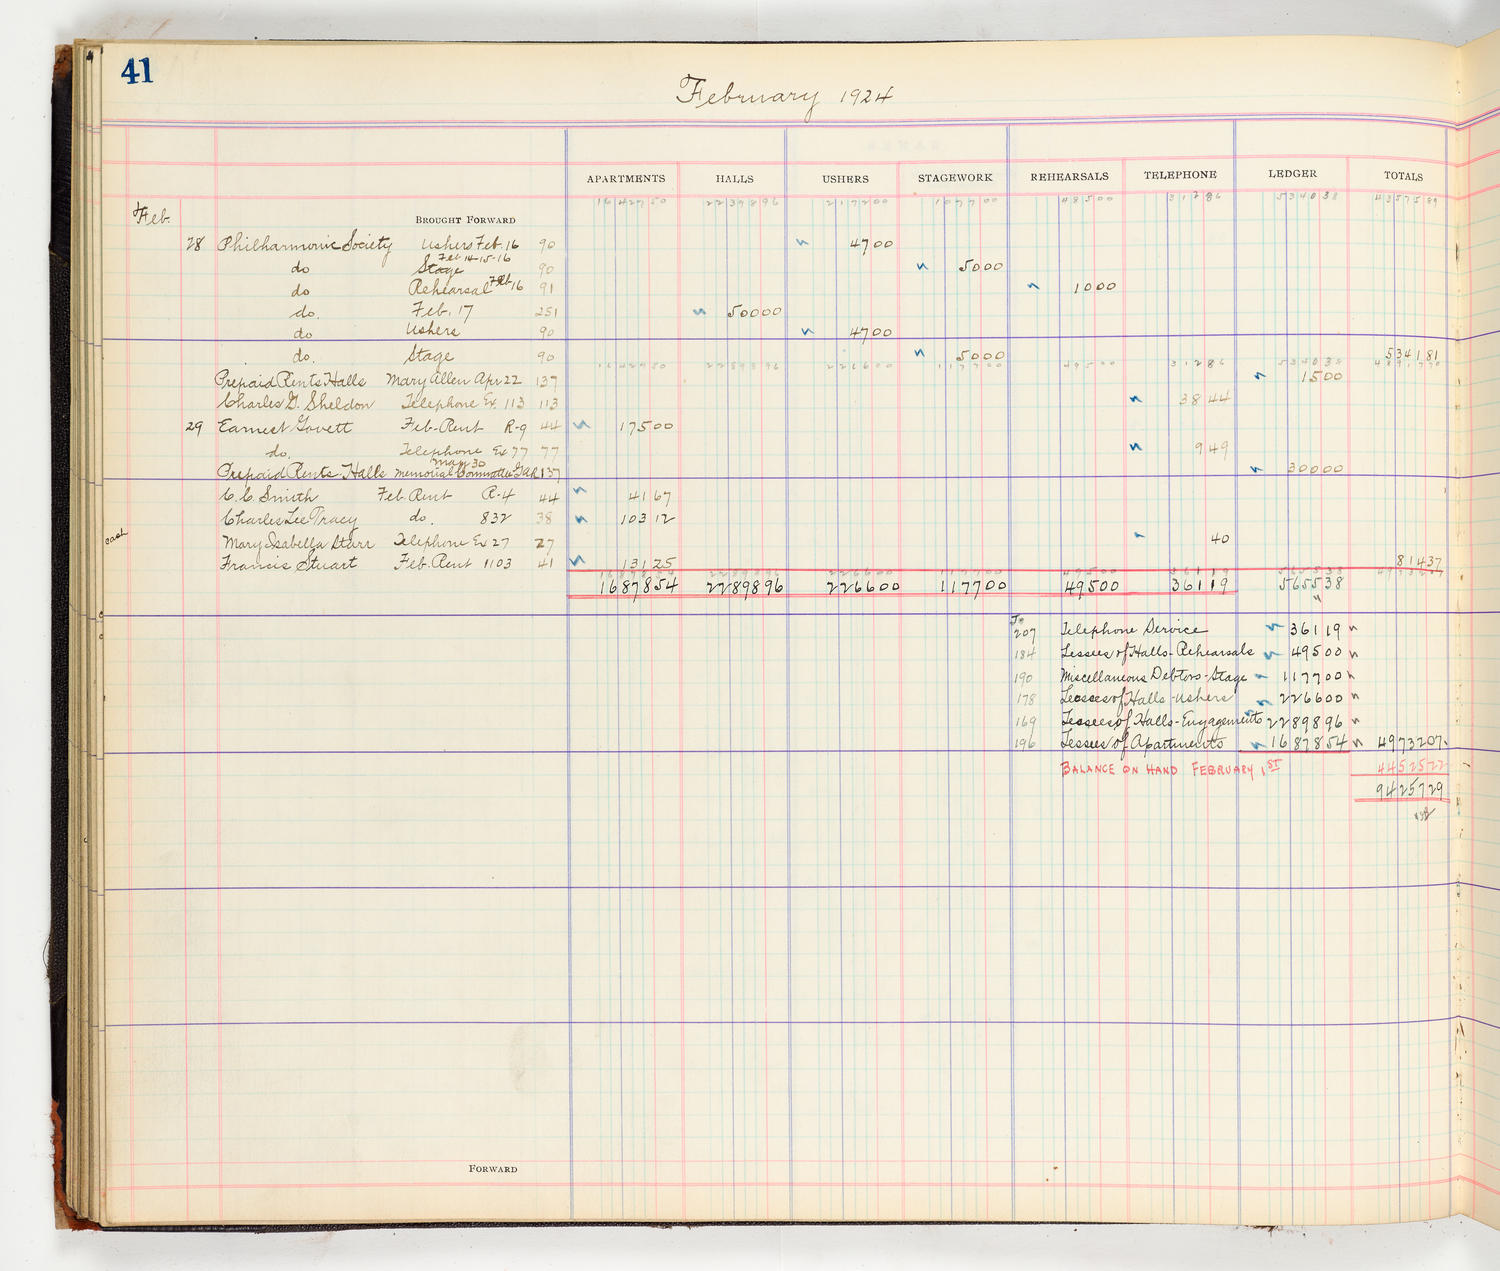 41
February 1924
APARTMENTS HALLS USHERS STAGEWORK REHEARSALS TELEPHONE LEDGER TOTALS
1642750 2239896 217200 107700 48500 31286 534038 4357589
Feb. BROUGHT FORWARD
28 Philharmonic Society Ushers Feb. 16 90 4700
do Stage Feb 14-15-16 90 5000
do Rehearsal Feb 16 91 1000
do. Feb. 17 251 50000
do Ushers 90 4700
do. Stage 90 5000 534181
1642750 2289896 226600 117700 49500 31286 534038
Prepaid Rents Halls Mary Allen Apr 22 137 1500
Charles G. Sheldon Telephone Ex. 113 113 3844
29 Earnest Govett Feb-Rent R-9 44 17500
do. Telephone Ex 77 77 949
Prepaid Rents Halls May 30 Memorial Committee GAR 137 30000
C. C. Smith Feb Rent R-4 44 4167
Charles Lee Tracy do. 832 38 10312
cash Mary Isabella Starr Telephone Ex 27 27 40
Francis Stuart Feb. Rent 1103 41 13125 81437
1687854 2289896 226600 117700 49500 36119 565538
207 Telephone Service 36119
184 Lessees of Halls-Rehearsals 49500
190 Miscellaneous Debtors-Stage 117700
178 Lessees of Halls-Ushers 226600
169 Lessees of Halls-Engagements 2289896
196 Lessees of Apartments 1687854 4973207
BALANCE ON HAND FEBRUARY 1ST 4452522
9425729
FORWARD